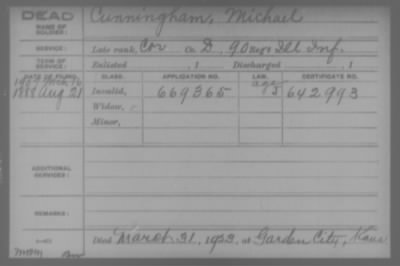 DEAD
NAME OF SOLDIER: Cunningham, Michael
SERVICE: Late rank, Cor Co. D, 90 Reg't Ill Inf.
TERM OF SERVICE: Enlisted , 1 Discharged , 1
DATE OF FILING. CLASS. APPLICATION NO. LAW. CERTIFICATE NO.
1888 Aug 21 Invalid, 669365 642993
Widow,
Minor,
ADDITIONAL SERVICES:
REMARKS:
Died March 31, 1923, at Garden City, Kans